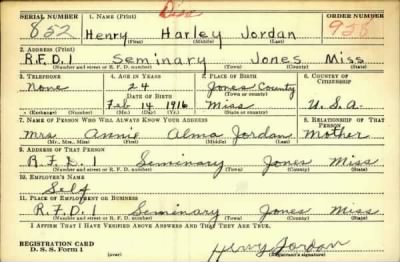 SERIAL NUMBER 1. NAME (Print) ORDER NUMBER
852 Henry Harley Jordan 958
(First) (Middle) (Last)
2. ADDRESS (Print)
R.F.D. 1 Seminary Jones Miss
(Number and street or R. F. D. number) (Town) (County) (State)
3. TELEPHONE 4. AGE IN YEARS 5. PLACE OF BIRTH 6. COUNTRY OF CITIZENSHIP
None 24 Jones County
DATE OF BIRTH (Town or county)
Feb 14 1916 Miss U.S.A.
(Exchange) (Number) (Mo.) (Day) (Yr.) (State or country)
7. NAME OF PERSON WHO WILL ALWAYS KNOW YOUR ADDRESS 8. RELATIONSHIP OF THAT PERSON
Mrs Annie Alma Jordan Mother
(Mr., Mrs., Miss) (First) (Middle) (Last)
9. ADDRESS OF THAT PERSON
R.F.D. 1 Seminary Jones Miss
(Number and street or R. F. D. number) (Town) (County) (State)
10. EMPLOYER'S NAME
Self
11. PLACE OF EMPLOYMENT OR BUSINESS
R.F.D. 1 Seminary Jones Miss
(Number and street or R. F. D. number) (Town) (County) (State)
I AFFIRM THAT I HAVE VERIFIED ABOVE ANSWERS AND THAT THEY ARE TRUE.
REGISTRATION CARD
D. S. S. Form 1 (over) Henry Jordan
(Registrant's signature)